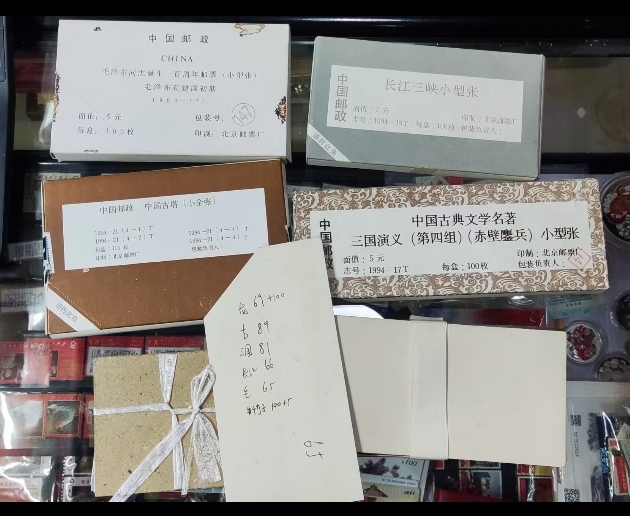 中国邮政
CHINA
毛泽东同志诞生一百周年邮票(小型张)
毛泽东在建国初期
面值：5元
包装号：
枚数：100枚
印制：北京邮票厂
中国邮政
长江三峡小型张
面值：5元
印制：北京邮票厂
志号：1994-18T
每盒：100枚
包装负责人：
中国邮政 中国古塔(小全张)
1994-21(4-1)T
1994-21(4-2)T
印制：北京邮票厂
中国邮政
中国古典文学名著
三国演义(第四组)(赤壁鏖兵)小型张
面值：5元
印制：北京邮票厂
志号：1994-17T
每盒：100枚
包装负责人：
龙 69+100
古 89
三国 81
长江 66
毛 65
100+5
65